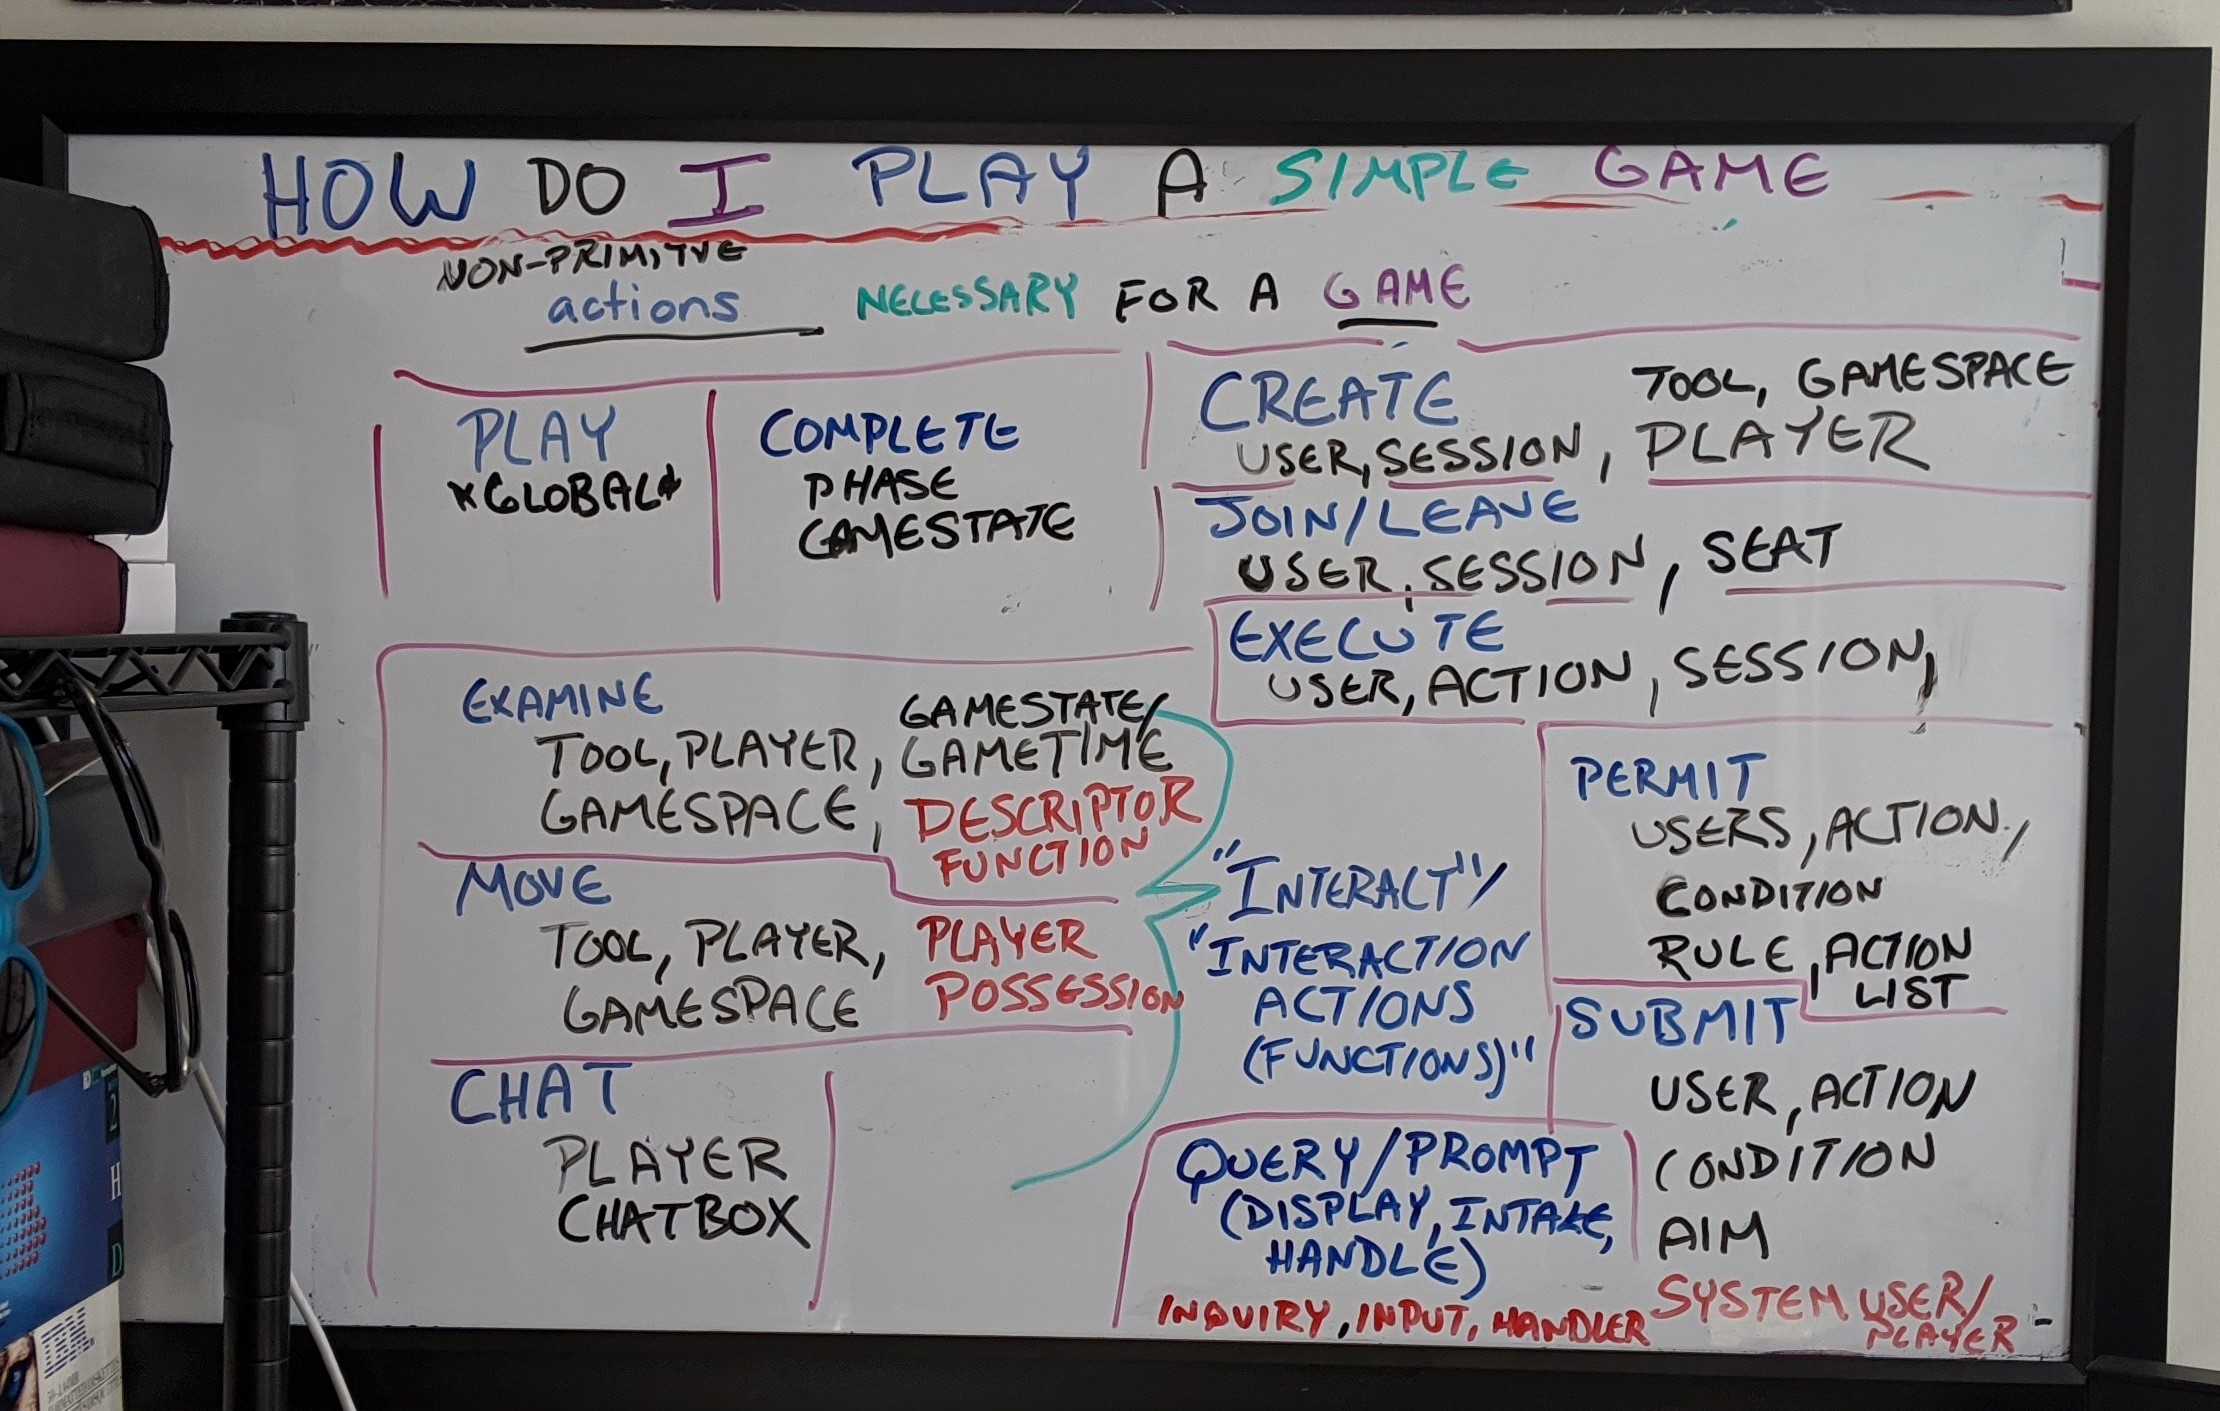 HOW DO I PLAY A SIMPLE GAME
NON-PRIMITVE
actions NECESSARY FOR A GAME
PLAY
*GLOBAL*
COMPLETE
PHASE
GAMESTATE
CREATE TOOL, GAMESPACE
USER, SESSION, PLAYER
JOIN/LEAVE
USER, SESSION, SEAT
EXECUTE
USER, ACTION, SESSION,
EXAMINE GAMESTATE/
TOOL, PLAYER, GAMETIME
GAMESPACE, DESCRIPTOR
FUNCTION
MOVE
TOOL, PLAYER, PLAYER
GAMESPACE POSSESSION
CHAT
PLAYER
CHATBOX
"INTERACT"/
"INTERACTION
ACTIONS
(FUNCTIONS)"
PERMIT
USERS, ACTION,
CONDITION
RULE, ACTION
LIST
SUBMIT
USER, ACTION
CONDITION
AIM
SYSTEM USER/
PLAYER
QUERY/PROMPT
(DISPLAY, INTAKE,
HANDLE)
INQUIRY, INPUT, HANDLER
2
H
D
IBM